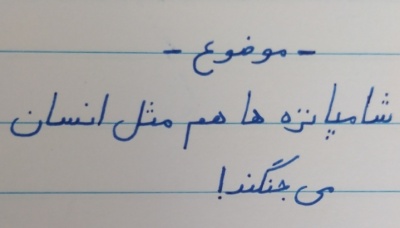 - موضوع -
شامپانزه ها هم مثل انسان
می جنگند!